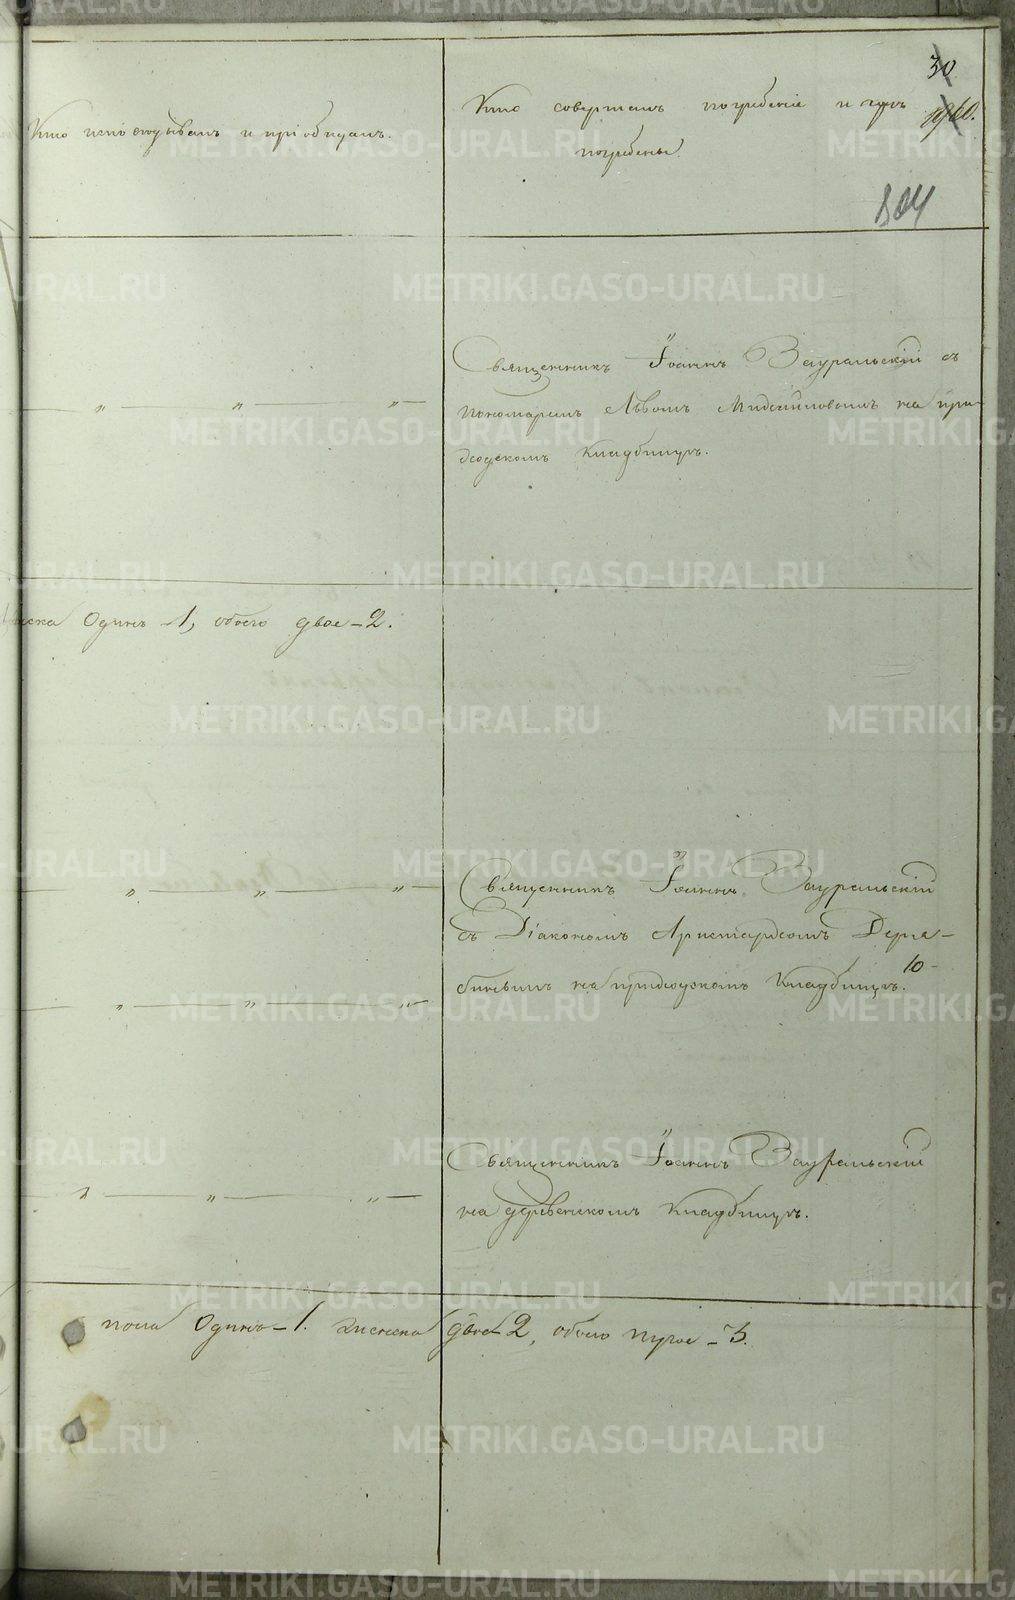 30
1960.
804
Кто исповѣдывалъ и пріобщалъ.
Кто совершалъ погребеніе и гдѣ
погребены.
Священникъ Іоаннъ Зауральскій съ
пономаремъ Львомъ на при-
ходскомъ кладбищѣ.
женска Одинъ - 1, обоего двое - 2.
Священникъ Іоаннъ Зауральскій
съ Діакономъ Аристархомъ Деря-
бинымъ на приходскомъ кладбищѣ. 10
Священникъ Іоаннъ Зауральскій
на деревенскомъ кладбищѣ.
пола Одинъ - 1. женска двѣ 2, обоего трое - 3.
METRIKI.GASO-URAL.RU